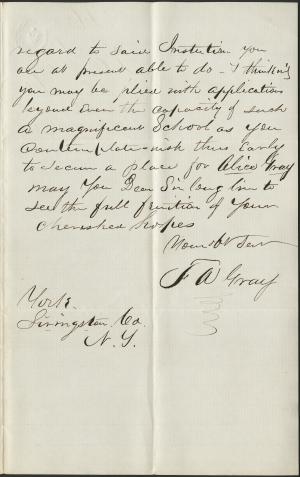 regard to said Institution you
are at present able to do - I thinking
you may be plied with applications
beyond even the capacity of such
a magnificent School as you
Contemplate - wish thus Early
to secure a place for Alice Gray
may you Dear Sir long live to
see the full fruition of your
cherished hopes
Your Obt Servt
F A Gray
York
Livingston, Co.
N. Y.